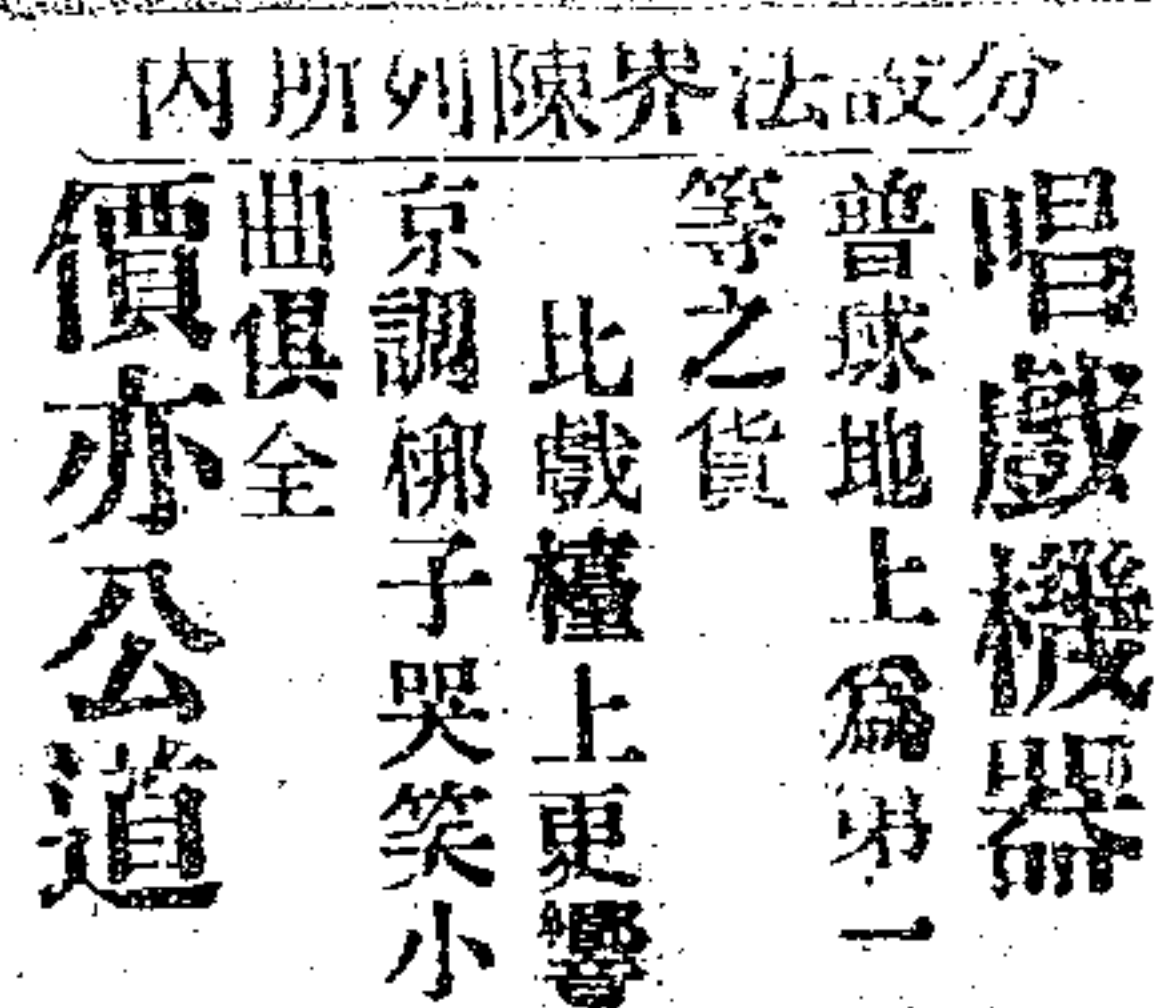 分設法界陳列所內
唱戲機器
普球地上爲第一
等之貨
比戲檯上更響
京調梆子哭笑小
曲俱全
價亦公道